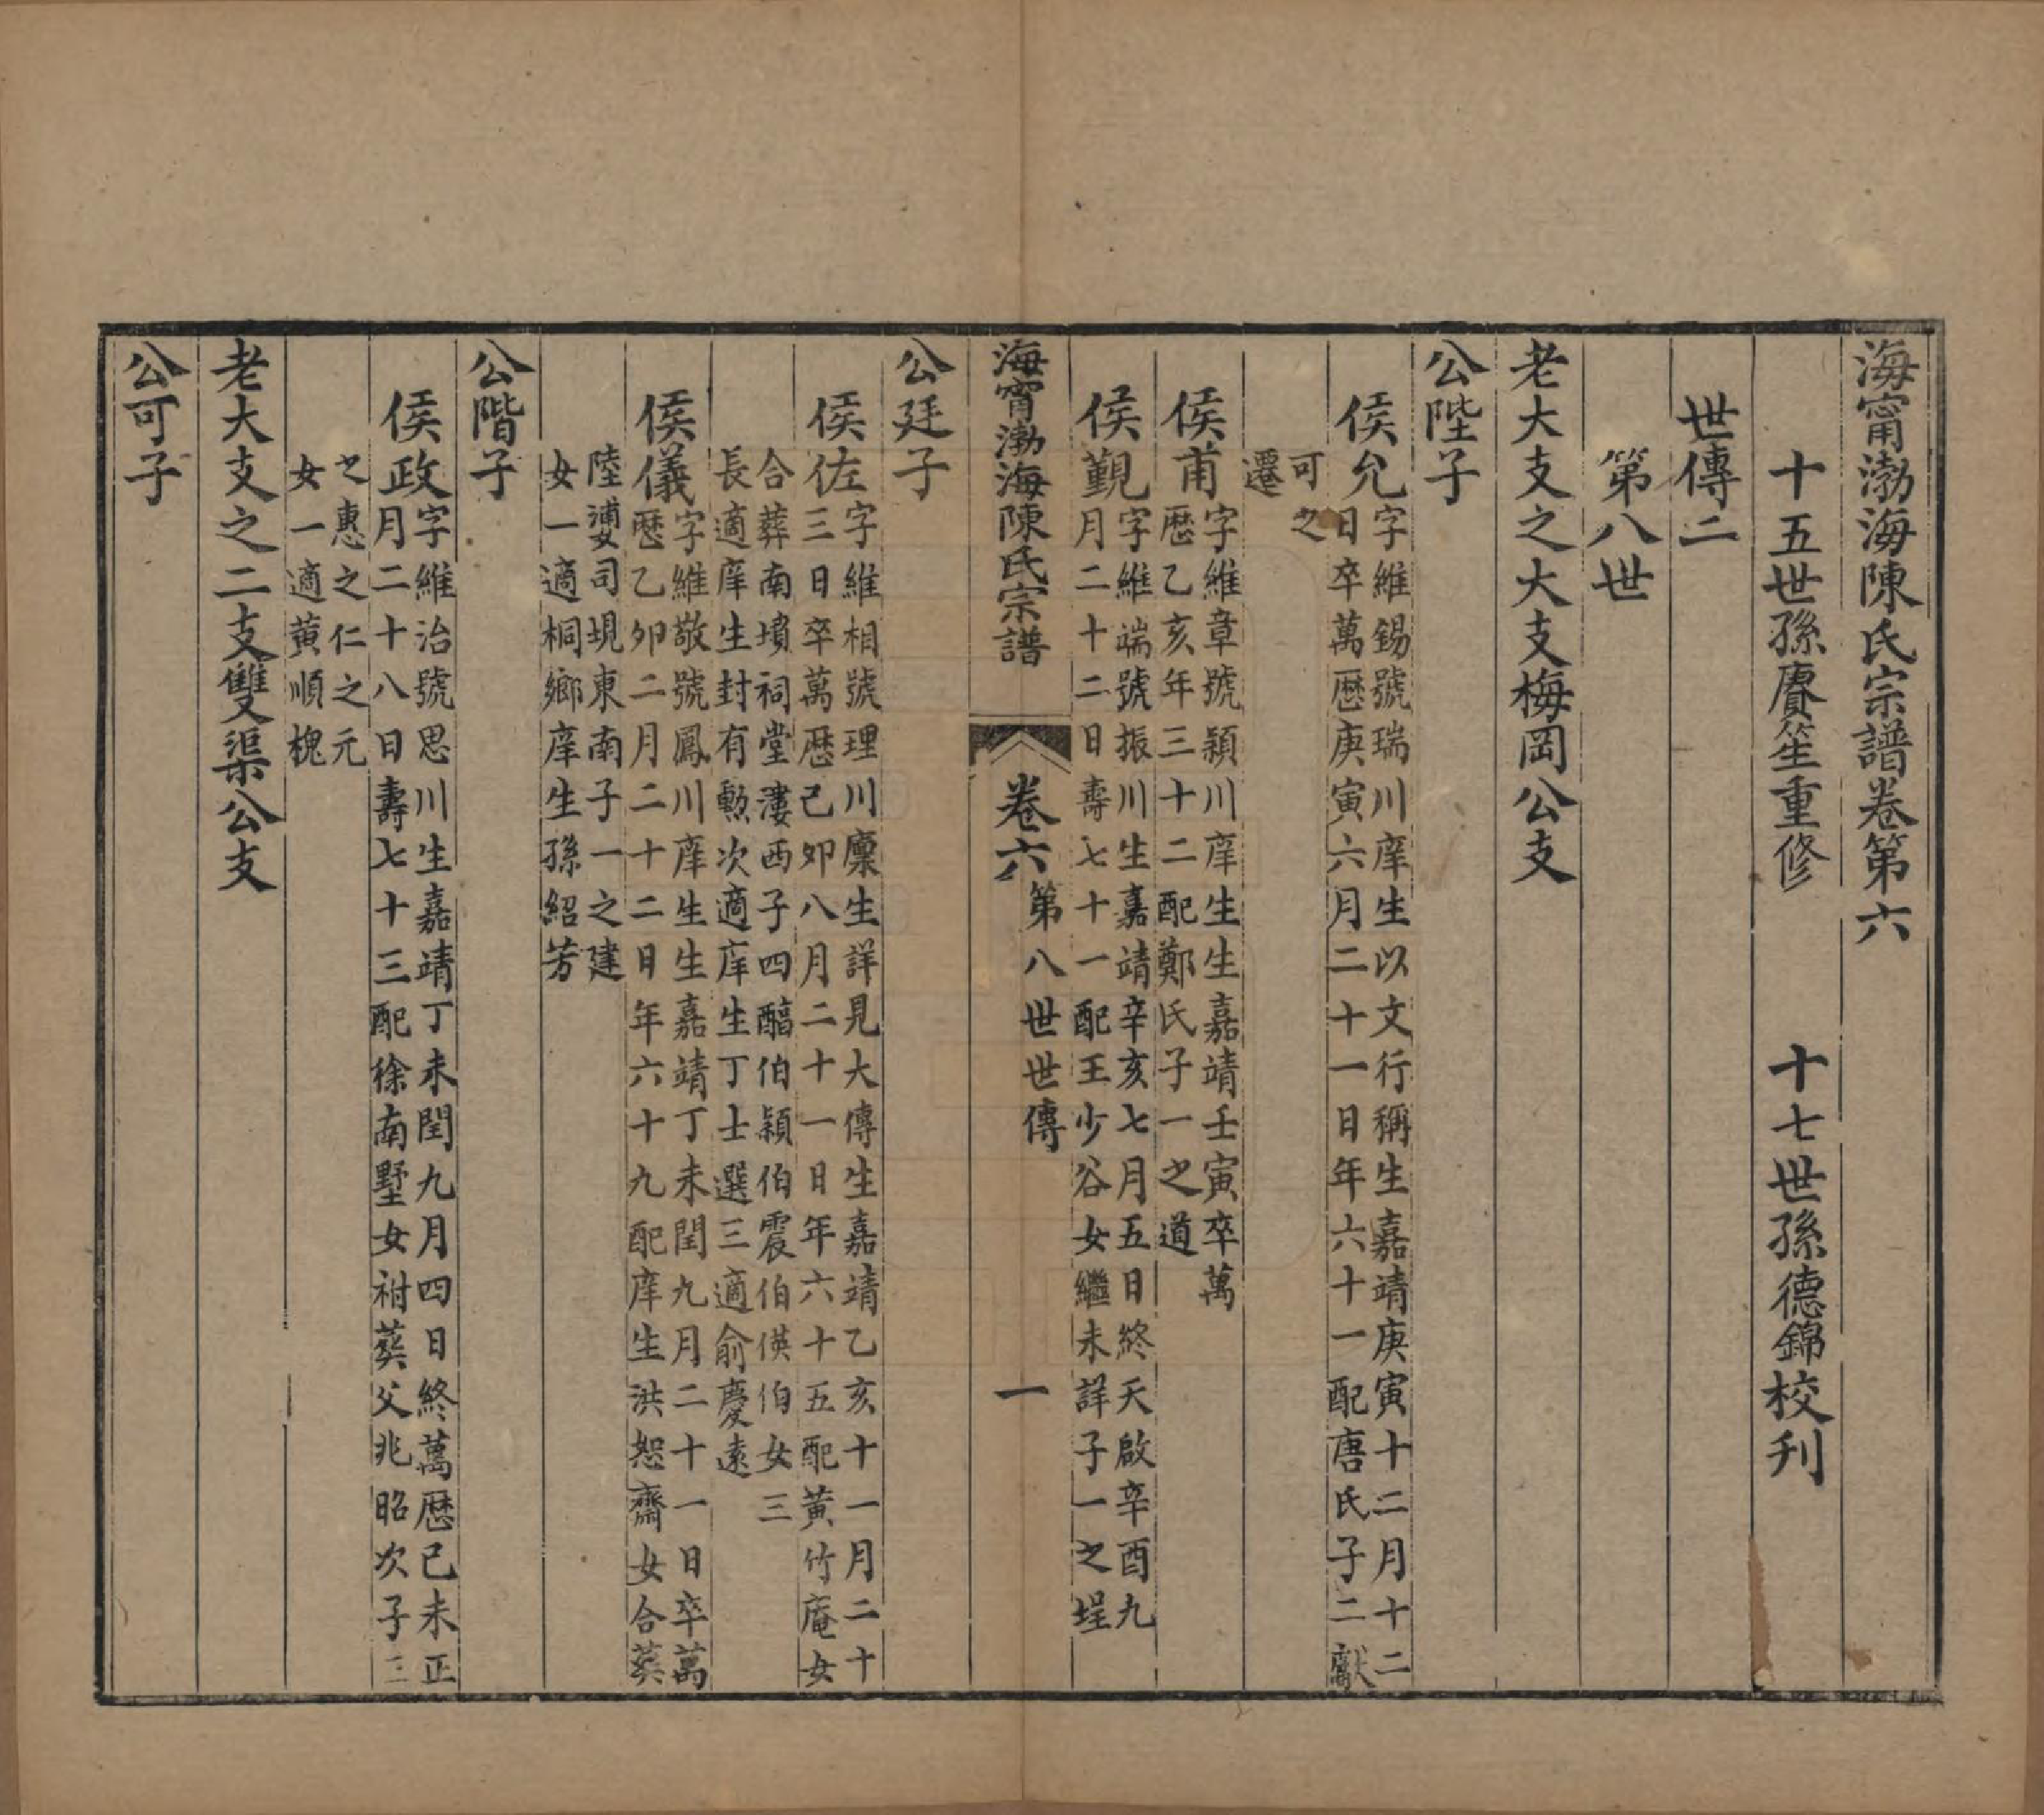 海甯渤海陳氏宗譜卷第六
十五世孫賡笙重修　十七世孫德錦校刋
世傳二
第八世
老大支之大支梅岡公支
公陛子
侯允字維錫號瑞川庠生以文行稱生嘉靖庚寅十二月十二
日卒萬歴庚寅六月二十一日年六十一配唐氏子二獻
可之
遷
侯甫字維章號穎川庠生生嘉靖壬寅卒萬
歴乙亥年三十二配鄭氏子一之道
侯覲字維端號振川生嘉靖辛亥七月五日終天啟辛酉九
月二十二日壽七十一配王少谷女繼未詳子一之埕
海甯渤海陳氏宗譜
卷六
第八世世傳
一
公廷子
侯佐字維相號理川廩生詳見大傳生嘉靖乙亥十一月二十
三日卒萬歴己夘八月二十一日年六十五配黃竹庵女
合葬南墳祠堂漊西子四酯伯穎伯震伯偀伯女三
長適庠生封有勲次適庠生丁士選三適俞慶遠
侯儀字維敬號鳳川庠生生嘉靖丁未閏九月二十一日卒萬
歴乙夘二月二十二日年六十九配庠生洪恕齋女合葬
陸漊司垷東南子一之建
女一適桐鄉庠生孫紹芳
公階子
侯政字維治號思川生嘉靖丁未閏九月四日終萬歴己未正
月二十八日壽七十三配徐南墅女祔葬父兆昭次子三
之惠之仁之元
女一適黃順槐
老大支之二支雙渠公支
公可子